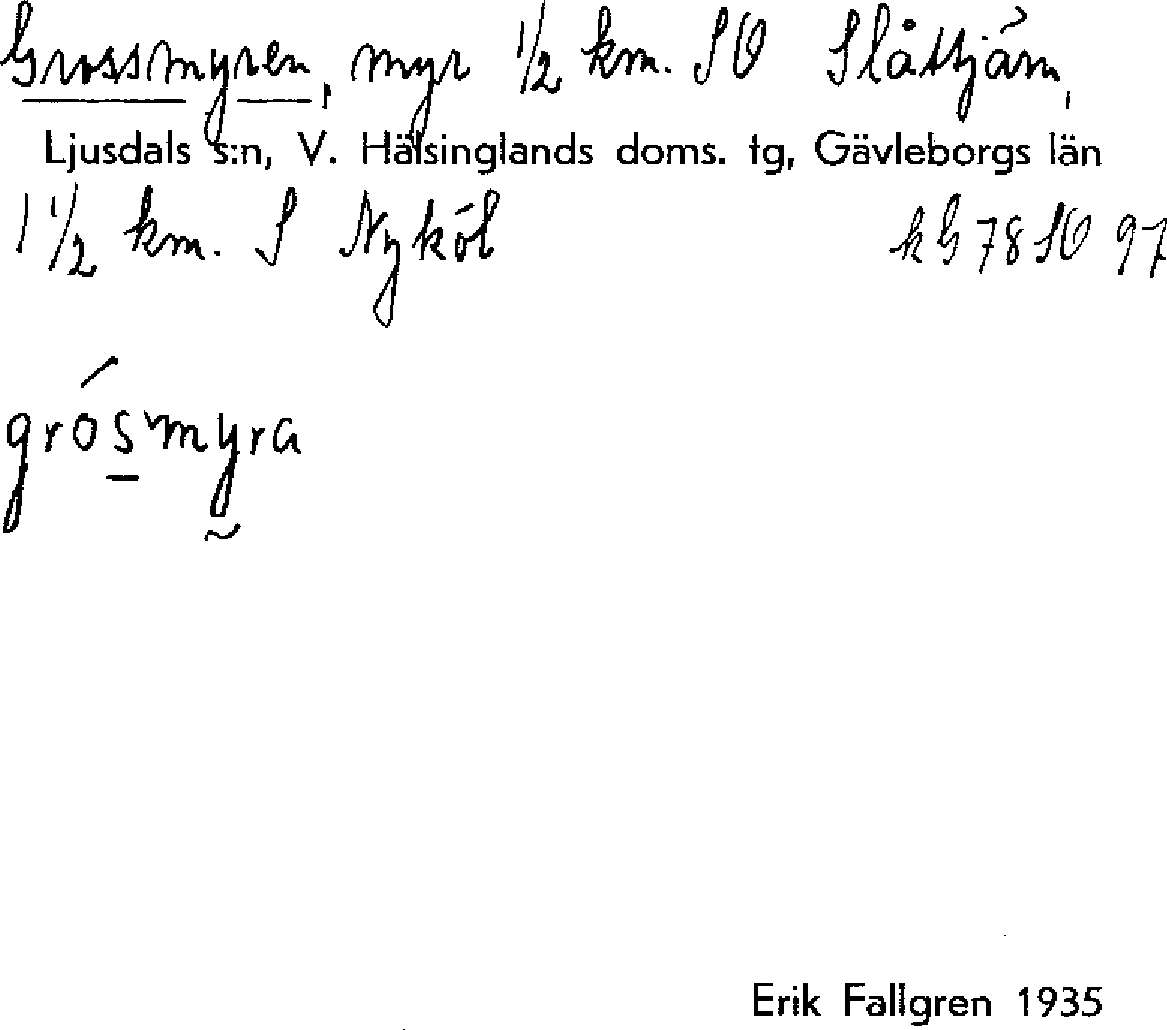 Grossmyren, myr 1/2 km. SO Slåttjärn,
Ljusdals s:n, V. Hälsinglands doms. tg, Gävleborgs län
1 1/2 km. S Nyköl kG 78 SO 97
grósmyra
Erik Fallgren 1935